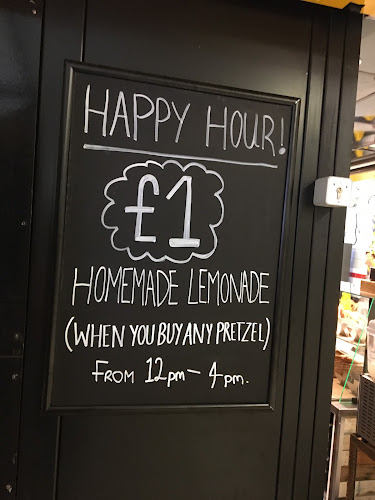 HAPPY HOUR!
£1
HOMEMADE LEMONADE
(WHEN YOU BUY ANY PRETZEL)
FROM 12pm - 4pm.